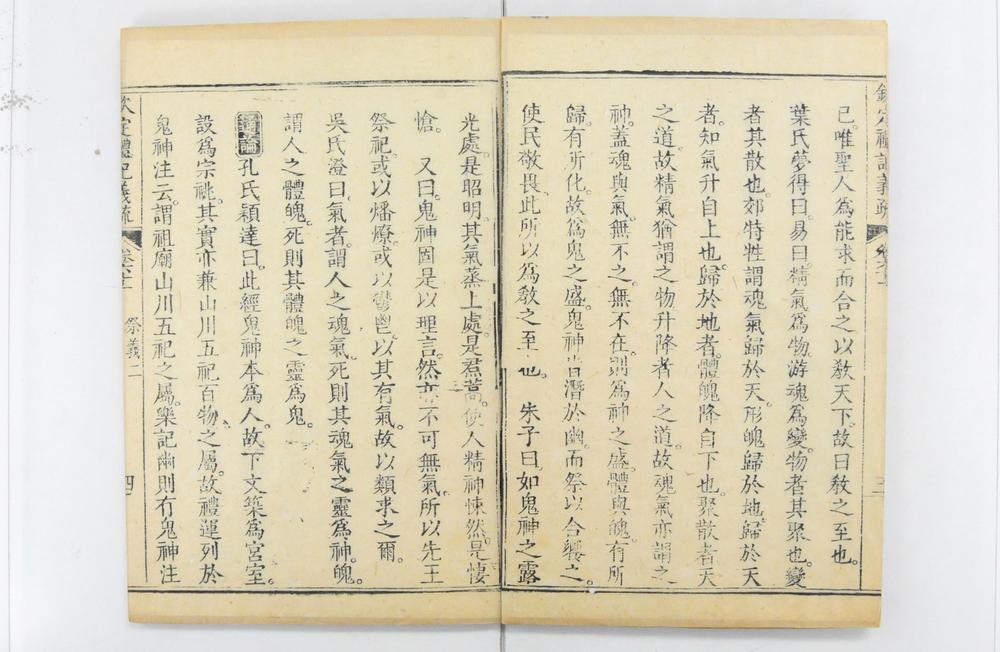 欽定禮記義疏 卷六十 三
已。唯聖人爲能求而合之以敎天下。故曰敎之至也。
葉氏夢得曰。易曰精氣爲物。游魂爲變。物者其聚也。變
者其散也。郊特牲謂魂氣歸於天。形魄歸於地。歸於天
者。知氣升自上也。歸於地者。體魄降自下也。聚散者天
之道。故精氣猶謂之物。升降者人之道。故魂氣亦謂之
神。蓋魂與氣。無不之。無不在。則爲神之盛。體與魄。有所
歸。有所化。故爲鬼之盛。鬼神皆潛於幽。而祭以合饗之。
使民敬畏。此所以爲敎之至也。 朱子曰。如鬼神之露
光處。是昭明。其氣蒸上處。是焄蒿。使人精神悚然。是悽
愴。 又曰。鬼神固是以理言。然亦不可無氣。所以先王
祭祀。或以燔燎。或以鬱鬯。以其有氣。故以類求之爾。
吳氏澄曰。氣者。謂人之魂氣。死則其魂氣之靈爲神。魄。
謂人之體魄。死則其體魄之靈爲鬼。
通論 孔氏穎達曰。此經鬼神本爲人。故下文築爲宮室。
設爲宗祧。其實亦兼山川五祀百物之屬。故禮運列於
鬼神注云。謂祖廟山川五祀之屬。樂記幽則有鬼神注
欽定禮記義疏 卷六十 祭義二 四